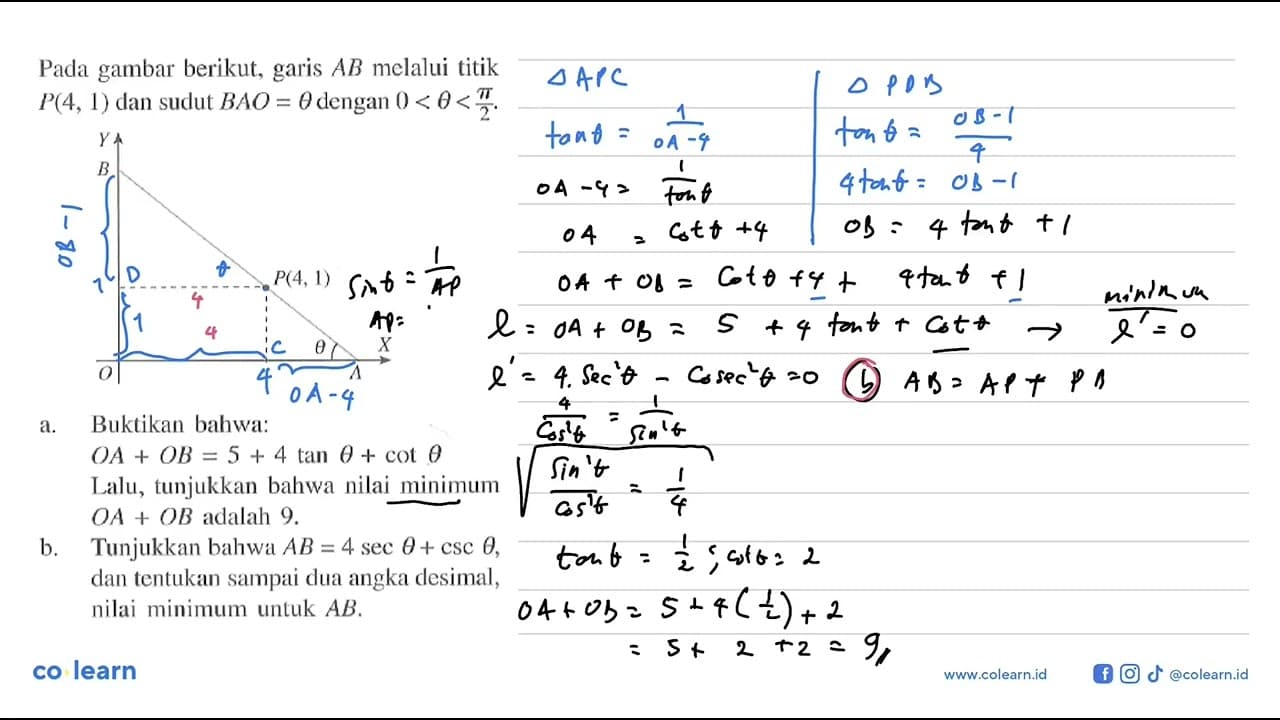 Pada gambar berikut, garis AB melalui titik
P(4, 1) dan sudut BAO = θ dengan 0 < θ < π/2.
Y
B
OB - 1
1
D
θ
P(4, 1)
4
1
4
C
θ
X
O
4
A
OA - 4
sin θ = 1/AP
AP =
a. Buktikan bahwa:
OA + OB = 5 + 4 tan θ + cot θ
Lalu, tunjukkan bahwa nilai minimum
OA + OB adalah 9.
b. Tunjukkan bahwa AB = 4 sec θ + csc θ,
dan tentukan sampai dua angka desimal,
nilai minimum untuk AB.
△ APC
tan θ = 1/(OA - 4)
OA - 4 = 1/tan θ
OA = Cot θ + 4
△ PDB
tan θ = (OB - 1)/4
4 tan θ = OB - 1
OB = 4 tan θ + 1
OA + OB = Cot θ + 4 + 4 tan θ + 1
l = OA + OB = 5 + 4 tan θ + Cot θ → minimum l' = 0
l' = 4. Sec²θ - Cosec²θ = 0
4/Cos²θ = 1/Sin²θ
√ Sin²θ/Cos²θ = 1/4
tan θ = 1/2 ; cot θ = 2
OA + OB = 5 + 4 (1/2) + 2
= 5 + 2 + 2 = 9
b AB = AP + PB
co learn
www.colearn.id
@colearn.id